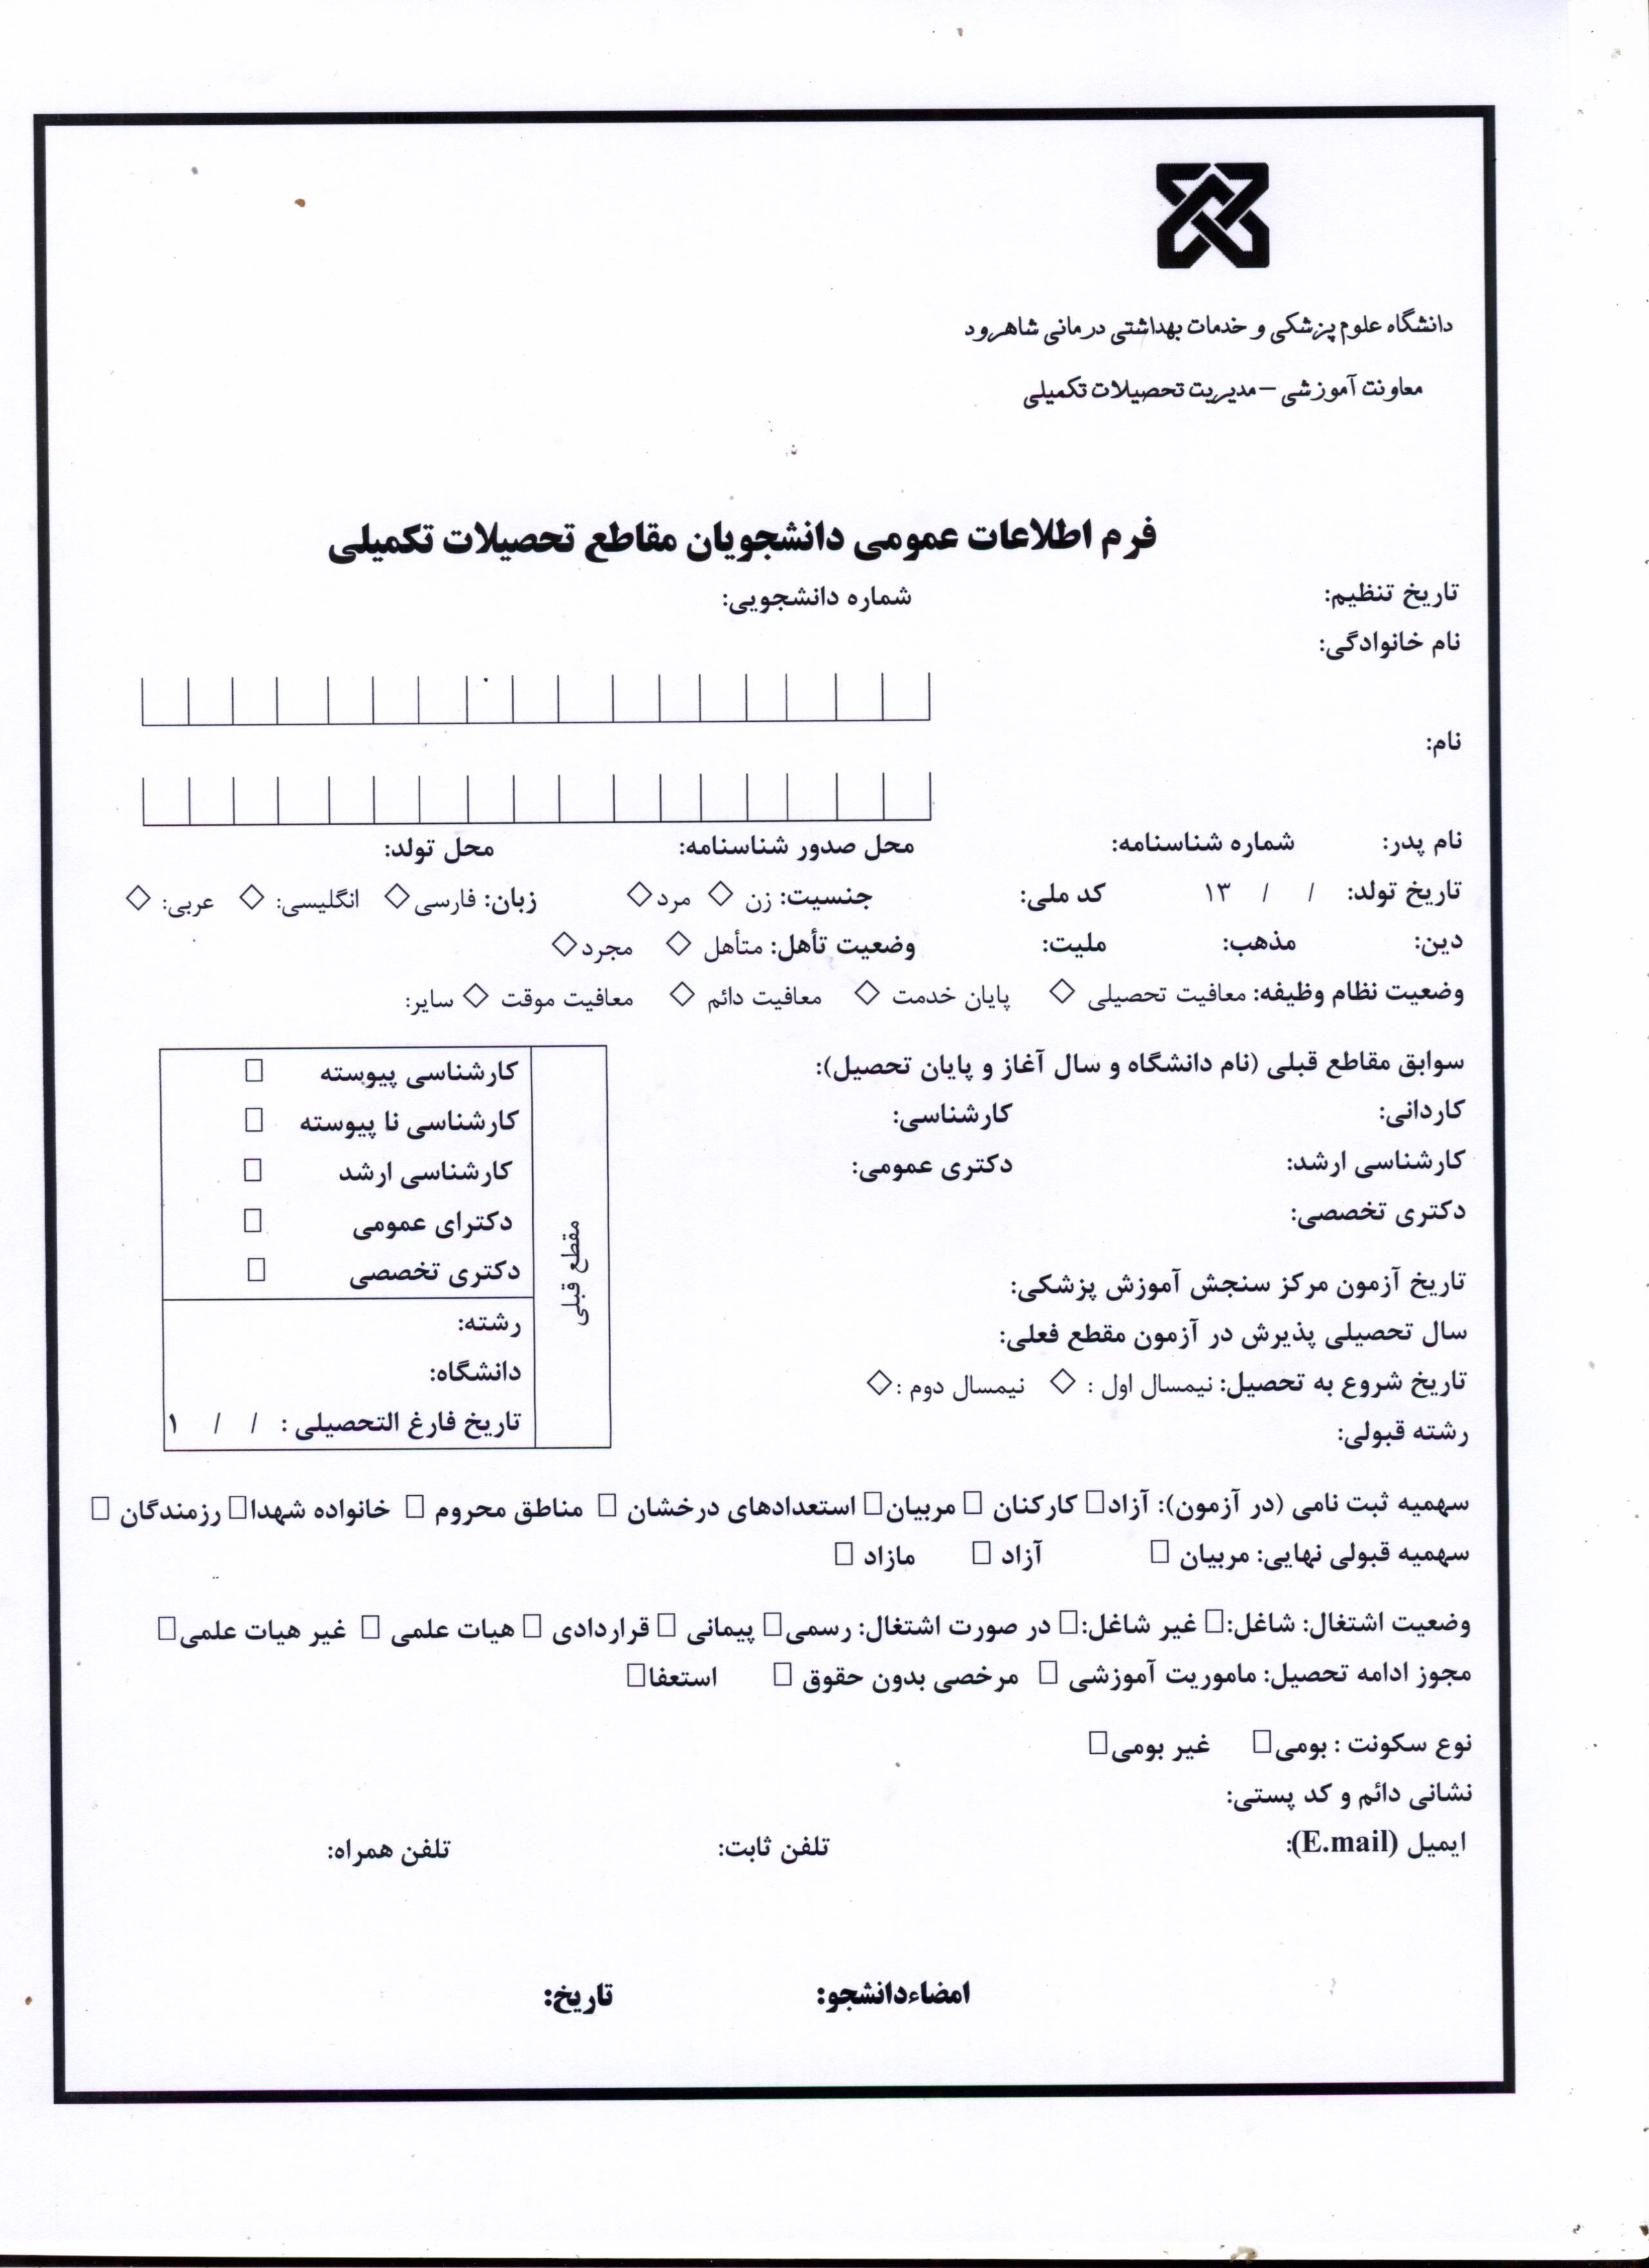 دانشگاه علوم پزشکی و خدمات بهداشتی درمانی شاهرود
معاونت آموزشی – مدیریت تحصیلات تکمیلی
فرم اطلاعات عمومی دانشجویان مقاطع تحصیلات تکمیلی
تاریخ تنظیم: شماره دانشجویی:
نام خانوادگی:
نام:
نام پدر: شماره شناسنامه: محل صدور شناسنامه: محل تولد:
تاریخ تولد: / / ۱۳ کد ملی: جنسیت: زن ◇ مرد◇ زبان: فارسی◇ انگلیسی: ◇ عربی: ◇
دین: مذهب: ملیت: وضعیت تأهل: متأهل ◇ مجرد◇
وضعیت نظام وظیفه: معافیت تحصیلی ◇ پایان خدمت ◇ معافیت دائم ◇ معافیت موقت ◇ سایر:
سوابق مقاطع قبلی (نام دانشگاه و سال آغاز و پایان تحصیل):
کاردانی: کارشناسی:
کارشناسی ارشد: دکتری عمومی:
دکتری تخصصی:
تاریخ آزمون مرکز سنجش آموزش پزشکی:
سال تحصیلی پذیرش در آزمون مقطع فعلی:
تاریخ شروع به تحصیل: نیمسال اول : ◇ نیمسال دوم :◇
رشته قبولی:
مقطع قبلی
کارشناسی پیوسته □
کارشناسی نا پیوسته □
کارشناسی ارشد □
دکترای عمومی □
دکتری تخصصی □
رشته:
دانشگاه:
تاریخ فارغ التحصیلی : / / ۱
سهمیه ثبت نامی (در آزمون): آزاد□ کارکنان □ مربیان□ استعدادهای درخشان □ مناطق محروم □ خانواده شهدا□ رزمندگان □
سهمیه قبولی نهایی: مربیان □ آزاد □ مازاد □
وضعیت اشتغال: شاغل:□ غیر شاغل:□ در صورت اشتغال: رسمی□ پیمانی □ قراردادی □ هیات علمی □ غیر هیات علمی□
مجوز ادامه تحصیل: ماموریت آموزشی □ مرخصی بدون حقوق □ استعفا□
نوع سکونت : بومی□ غیر بومی□
نشانی دائم و کد پستی:
ایمیل (E.mail): تلفن ثابت: تلفن همراه:
امضاءدانشجو: تاریخ: